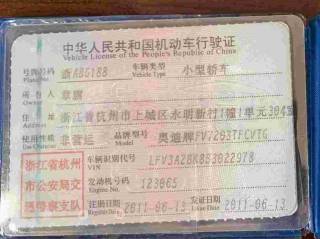 中华人民共和国机动车行驶证
Vehicle License of the People's Republic of China
号牌号码 浙A8G188 车辆类型 小型轿车
Plate No. Vehicle Type
所有人 章
住址 浙江省杭州市上城区永明新村1幢1单元304室
使用性质 非营运 品牌型号 奥迪牌FV7203TFCVTG
车辆识别代号
VIN
浙江省杭州
市公安局交
通警察支队
发动机号码 123065
Engine No.
注册日期 2011-06-13 发证日期 2011-06-13
Issue Date